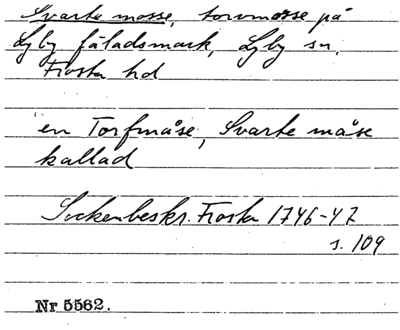 Svarte mosse, torvmosse på
Lyby fäladsmark, Lyby sn.
Frosta hd
en Torfmåse, Svarte måse
kallad
Sockenbeskr. Frosta 1746-47
s. 109
Nr 5562.